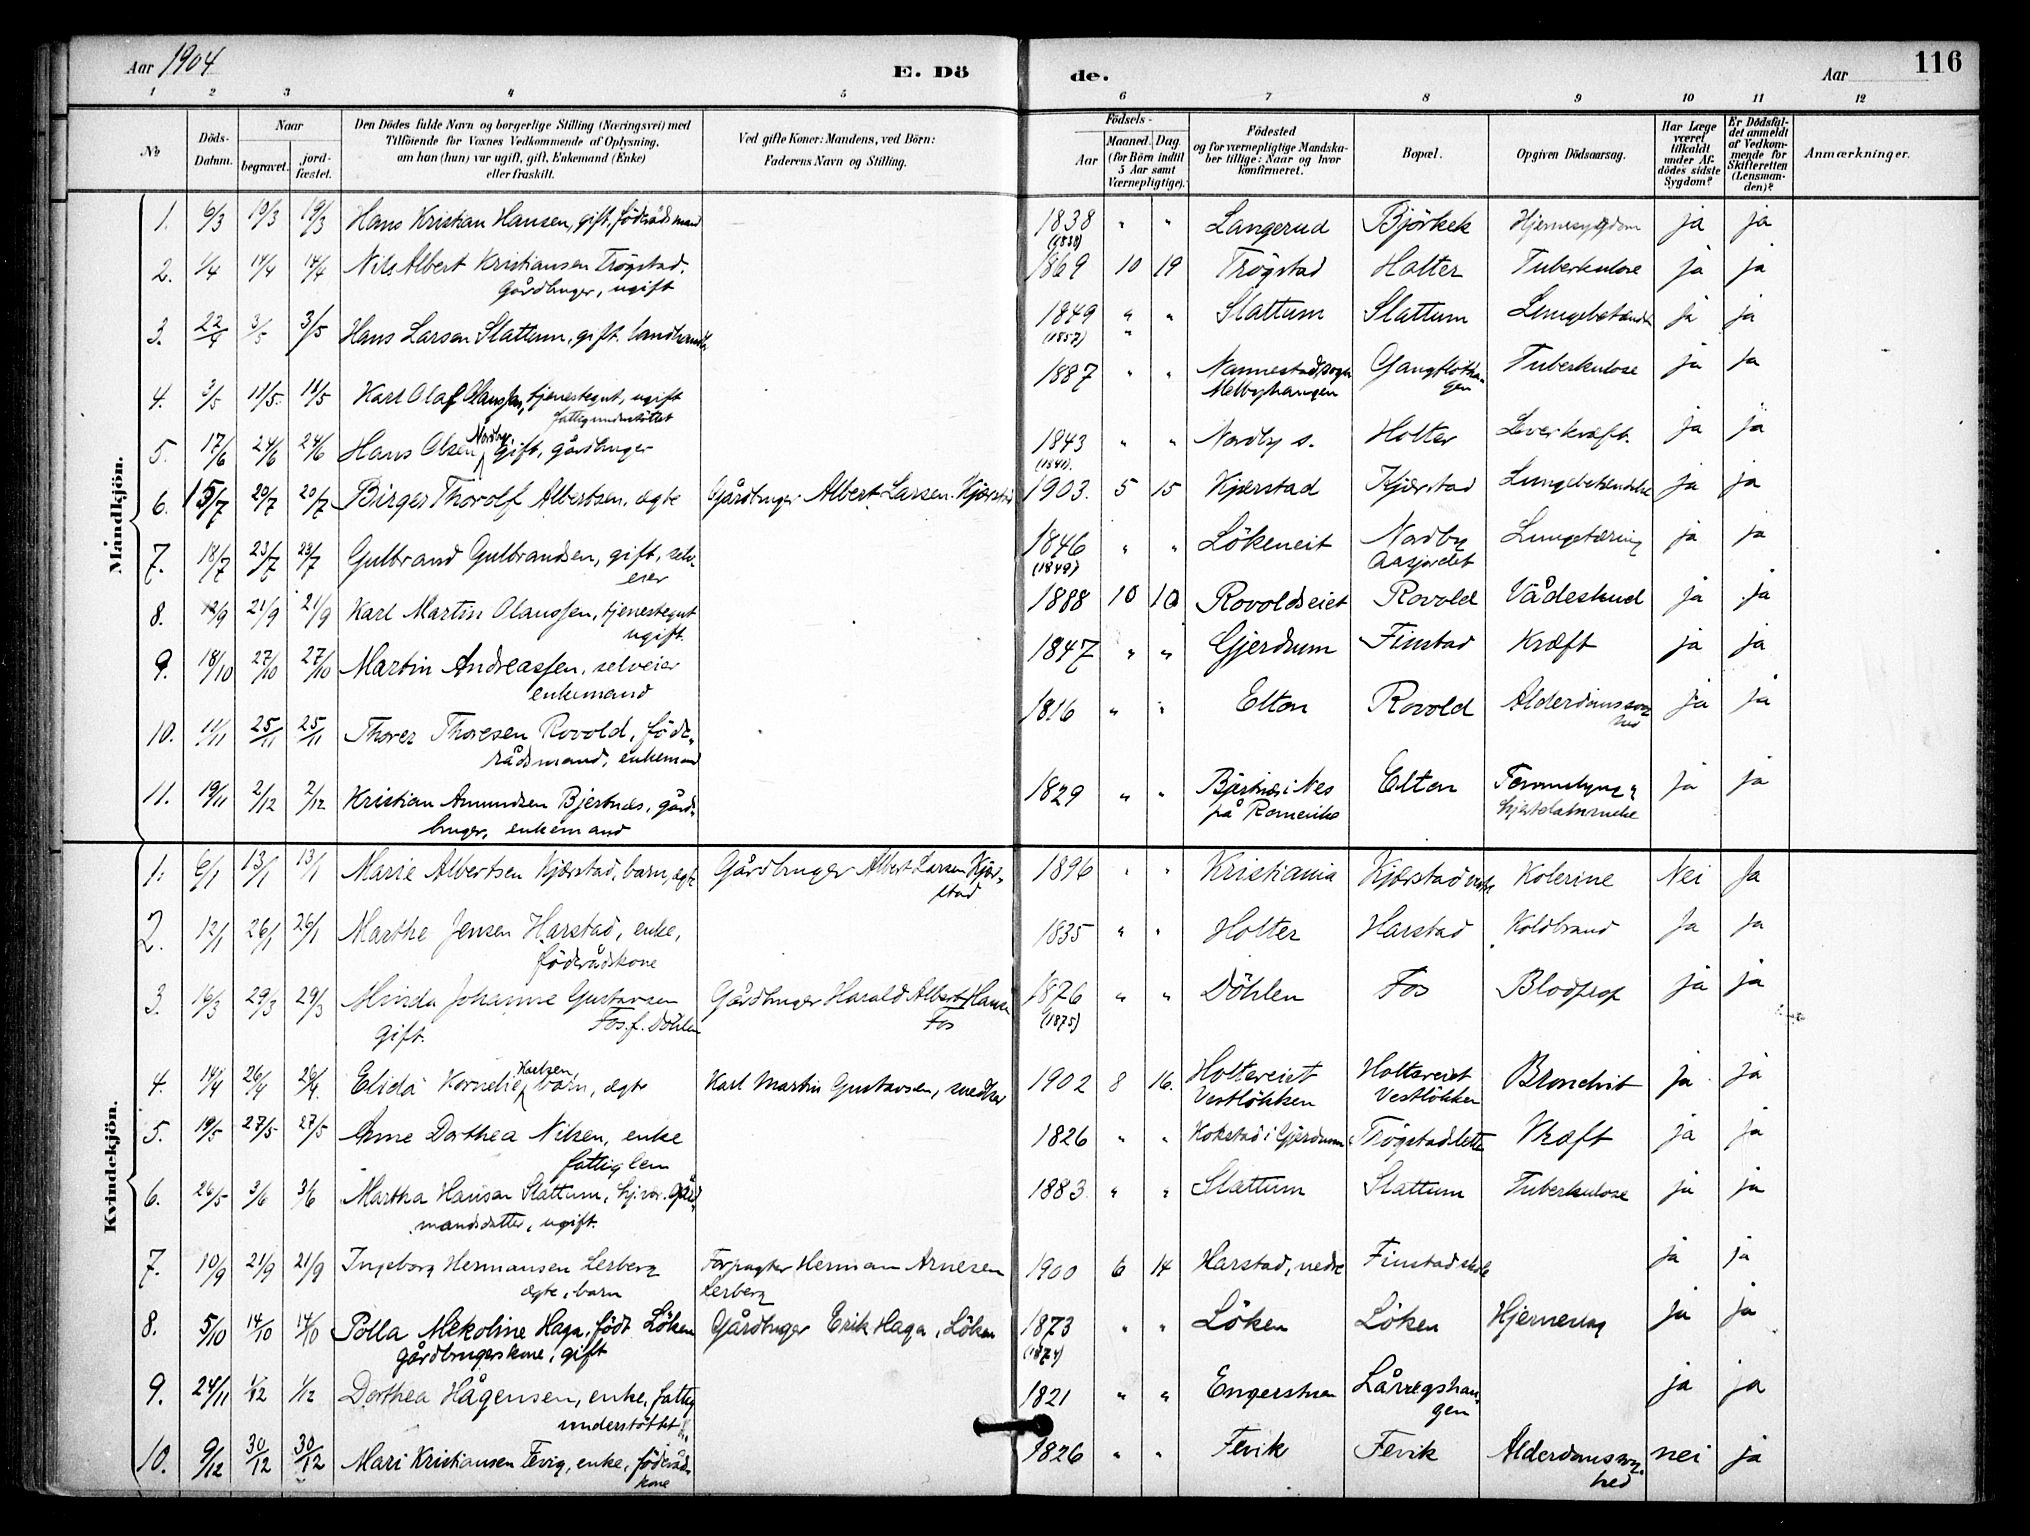 Aar 1904 E. Dö de. Aar 116
1 2 3 4 5 6 7 8 9 10 11 12
№ Döds-Datum. Naar begravet. jord-fæstet. Den Dödes fulde Navn og borgerlige Stilling (Næringsvei) med Tilföiende for Voxnes Vedkommende af Oplysning, om han (hun) var ugift, gift, Enkemand (Enke) eller fraskilt. Ved gifte Koner: Mandens, ved Börn: Faderens Navn og Stilling. Födsels- Aar Maaned. Dag. (for Börn indtil 5 Aar samt Værnepligtige). Födested og for værnepligtige Mandskaber tillige: Naar og hvor konfirmeret. Bopæl. Opgiven Dödsaarsag. Har Læge været tilkaldt under Afdödes sidste Sygdom? Er Dödsfaldet anmeldt af Vedkommende for Skifteretten (Lensmanden)? Anmærkninger.
Mandkjön.
1. 6/3 19/3 19/3 Hans Kristian Hansen, gift, föderådsmand 1838 " " Langerud Björkek Hjernesygdom ja ja
(1838)
2. 1/4 14/4 14/4 Nils Albert Kristiansen Trögstad, 1869 10 19 Trögstad Holter Tuberkulose ja ja
Gårdbruger, ugift
3. 22/4 3/5 3/5 Hans Larsen Slattum, gift. 1849 " " Slattum Slattum ja ja
(1857)
4. 3/5 11/5 11/5 Karl Olaf Olaussen, tjenestegut, ugift 1887 " " Tuberkulose ja ja
fattigunderstöttet
5. 17/6 24/6 24/6 Hans Olsen Nordby, gift, gårdbruger 1843 " " Nordby s. Holter Leverkræft. ja ja
(1841).
6. 15/7 20/7 20/7 Birger Thorolf Albertsen, ægte Gårdbruger Albert Larsen Kjærstad 1903. 5 15 Kjærstad Kjærstad Lungebetændelse ja ja
7. 18/7 23/7 23/7 Gulbrand Gulbrandsen, gift, selv- 1846 " " Lökeneit Nordby Lungetæring ja ja
eier (1849) Aasjordet
8. 12/9 21/9 21/9 Karl Martin Olaussen, tjenestegut 1888 10 10 Rovoldseiet Rovold Vådeskud ja ja
ugift.
9. 18/10 27/10 27/10 Martin Andreassen, selveier 1847 " " Gjerdrum Finstad Kræft ja ja
enkemand
10. 11/11 25/11 25/11 Thorer Thoresen Rovold, föde- 1816 " " Elton Rovold Alderdomssvag- ja ja
rådsmand, enkemand hed
11. 19/11 2/12 2/12 Kristian Amundsen Bjertnæs, gård- 1829 " " Bjertnæs i Nes Elton ja ja
bruger, enkemand på Romerike
Kvindekjön.
1. 6/1 13/1 13/1 Marie Albertsen Kjærstad, barn, ægte Gårdbruger Albert Larsen Kjær- 1896 " " Kristiania Kjærstad Kolerine Nei Ja
stad
2. 12/1 26/1 26/1 Marthe Jensen Harstad, enke, 1835 " " Holter Harstad Koldbrand Ja Ja
föderådskone
3. 16/3 29/3 29/3 Minda Johanne Gustavsen Gårdbruger Harald Albert Hansen 1876 " " Döhlen Fos Blodprop ja ja
gift. Fos. f. Döhlen Fos (1875)
4. 14/4 26/4 26/4 Elida Kornelie Karlsen, barn, ægte Karl Martin Gustavsen, snedker 1902 8 16. Holtereiet Holtereiet Bronchit ja ja
Vestlökken Vestlökken
5. 19/5 27/5 27/5 Anne Dorthea Nilsen, enke 1826 " " Kokstad i Gjerdrum Trögstadsletta Kræft ja ja
fattiglem
6. 26/5 3/6 3/6 Martha Hansen Slattum, hjvær. Gård- 1883 " " Slattum Slattum Tuberkulose ja ja
mandsdatter, ugift.
7. 10/9 21/9 21/9 Ingeborg Hermansen Lerberg Forpagter Herman Arnesen 1900 6 14 Harstad, nedre Finstad ja ja
ægte, barn Lerberg
8. 5/10 14/10 14/10 Polla Mekoline Haga, födt Löken Gårdbruger Erik Haga, Löken 1873 " " Löken Löken Hjerneslag ja ja
gårdbrugerskone, gift (1874)
9. 24/11 1/12 1/12 Dorthea Hågensen, enke, fattig 1821 " " Låvregshau- ja ja
understöttet gen
10. 9/12 30/12 30/12 Mari Kristiansen Fevig, enke, föderåds 1826 " " Fevik Fevik Alderdomssvag- nei ja
kone hed